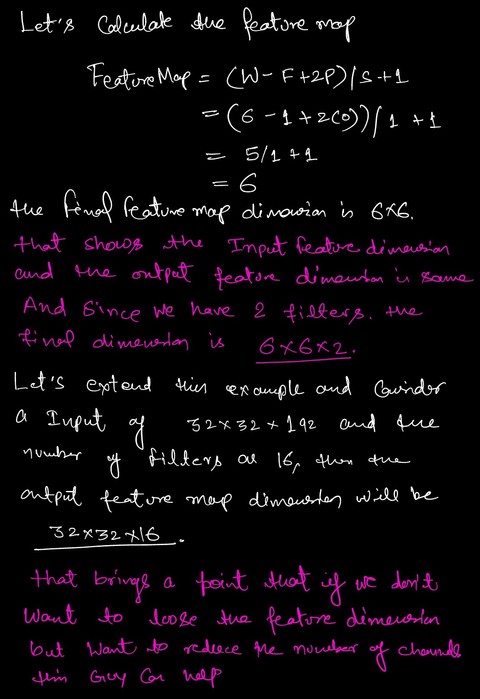 Let's Calculate the feature map
FeatureMap = (W-F+2P)/S+1
= (6-1+2(0))/1 +1
= 5/1+1
= 6
the final feature map dimension is 6x6.
that shows the Input feature dimension
and the output feature dimension is same
And since we have 2 filters. the
final dimension is 6x6x2.
Let's extend this example and Consider
a Input of 32x32x192 and the
number of filters as 16, then the
output feature map dimension will be
32x32x16.
that brings a point that if we don't
want to loose the feature dimension
but want to reduce the number of channels
this Guy Can help